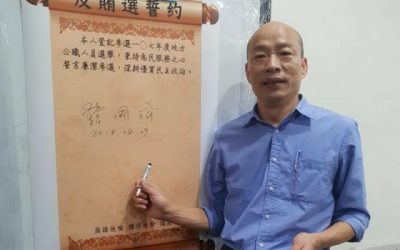 反賄選誓約
本人登記參選一〇七年度地方
公職人員選舉，秉持為民服務之心
誓言廉潔參選，深耕優質民主政治。
韓國瑜
2018.08.29
高雄地檢 橋頭地檢